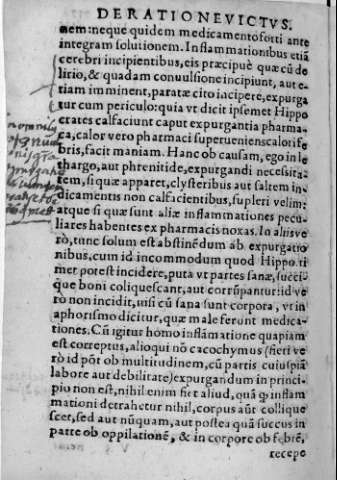 DE RATIONE VICTVS.
nem: neque quidem medicamento forti ante
integram solutionem. Inflammationibus etiã
cerebri incipientibus, eis præcipuè quæ cũ de
lirio, & quadam conuulsione incipiunt, aut e-
tiam imminent, paratæ cito iacipere, expurga
tur cum periculo: quia vt dicit ipsemet Hippo
crates calfaciunt caput expurgantia pharma-
ca, calor vero pharmaci superueniens calori fe
bris, facit maniam. Hanc ob causam, ego in le
thargo, aut phrenitide, expurgandi necessita-
tem, si quæ apparet, clysteribus aut saltem in
dicamentis non calfacientibus, supleri velim:
atque si quæ sunt aliæ inflammationes pecu-
liares habentes ex pharmacis noxas. In aliis ve
rò, tunc solum est abstinẽdum ab expurgatio
nibus, cum id incommodum quod Hippo. ti
met potest incidere, puta vt partes sanæ, succi-
que boni coliquescant, aut corrũpantur: id ve
rò non incidit, nisi cũ sana sunt corpora, vt in
aphorismo dicitur, quæ male ferunt medica-
tiones. Cũ igitur homo inflãmatione quapiam
est correptus, alioqui nõ cacochymus (fieri ve
rò id põt ob multitudinem, cũ partis cuiuspiã
labore aut debilitate) expurgandum in princi-
pio non est, nihil enim fiet aliud, quã q inflam
mationi detrahetur nihil, corpus aũt collique
scet, sed aut nũquam, aut postea quã succus in
parte ob oppilationẽ, & in corpore ob febrẽ,
recepe